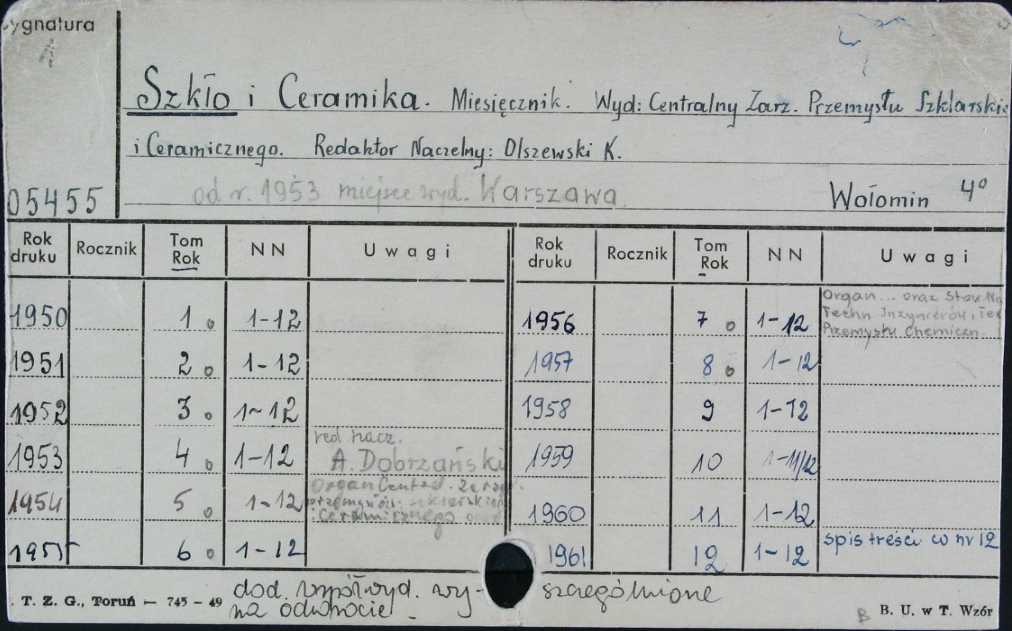 Sygnatura
Szkło i Ceramika. Miesięcznik. Wyd: Centralny Zarz. Przemysłu Szklarskie
i Ceramicznego. Redaktor Naczelny: Olszewski K.
od r. 1953 miejsce wyd. Warszawa.
05455 Wołomin 4°
Rok druku Rocznik Tom Rok NN Uwagi Rok druku Rocznik Tom Rok NN Uwagi
1950 1 o 1-12 1956 7 o 1-12 Organ ... oraz Stow. Na
Techn Inżynierów i Tec
Przemysłu Chemiczn.
1951 2 o 1-12 1957 8 o 1-12
1952 3 o 1-12 1958 9 1-12
1953 4 o 1-12 red nacz. A. Dobrzański 1959 10 1-11/12
1954 5 o 1-12 Organ Centr. Zarz. przemysłu szklarskiego i Ceramicznego oraz 1960 11 1-12
1955 6 o 1-12 1961 12 1-12 spis treści w nr 12
dod. współwyd. wy- szczególnione
na odwrocie -
. T. Z. G., Toruń — 745 - 49 B B. U. w T. Wzór